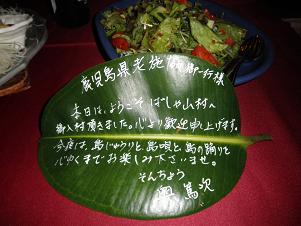 鹿児島県老施協御一行様
本日は、ようこそ ばしゃ山村へ
御入村頂きました。心より歓迎申し上げます。
今夜は、島じゅうりと、島唄と島の踊りを
心ゆくまでお楽しみ下さいませ。
そんちょう
奥 篤次